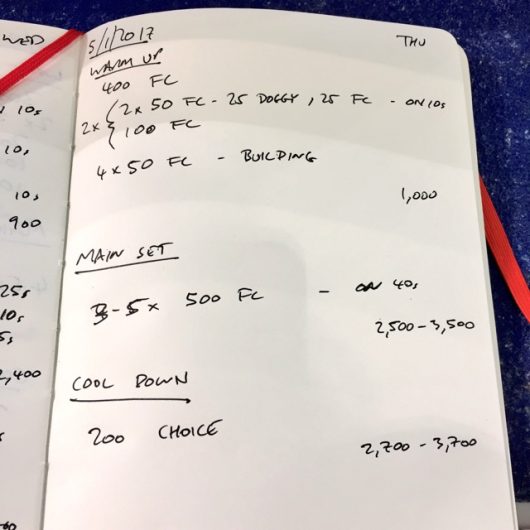 WED
10s
10s
10s
900
25s
10s
5s
2,400
5/1/2017 THU
WARM UP
400 FC
2x { 2x 50 FC - 25 DOGGY, 25 FC - ON 10s
100 FC
4 x 50 FC - BUILDING
1,000
MAIN SET
3-5x 500 FC - ON 40s
2,500-3,500
COOL DOWN
200 CHOICE
2,700-3,700